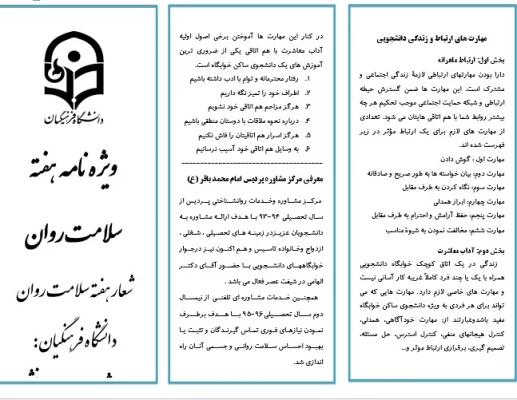 مهارت های ارتباط و زندگی دانشجویی
بخش اول: ارتباط ماهرانه
دارا بودن مهارتهای ارتباطی لازمهٔ زندگی اجتماعی و
مشترک است. این مهارت ها ضمن گسترش حیطه
ارتباطی و شبکه حمایت اجتماعی موجب تحکیم هر چه
بیشتر روابط شما با هم اتاقی هایتان می شود. تعدادی
از مهارت های لازم برای یک ارتباط مؤثر در زیر
فهرست شده اند.
مهارت اول : گوش دادن
مهارت دوم: بیان خواسته ها به طور صریح و صادقانه
مهارت سوم: نگاه کردن به طرف مقابل
مهارت چهارم: ابراز همدلی
مهارت پنجم: حفظ آرامش و احترام به طرف مقابل
مهارت ششم: مخالفت نمودن به شیوهٔ مناسب
بخش دوم: آداب معاشرت
زندگی در یک اتاق کوچک خوابگاه دانشجویی
همراه با یک یا چند فرد کاملاً غریبه کار آسانی نیست
و مهارت های خاصی لازم دارد. مهارت هایی که می
تواند برای هر فردی به ویژه دانشجوی ساکن خوابگاه
مفید باشدوعبارتند از: مهارت خودآگاهی، همدلی،
کنترل هیجانهای منفی، کنترل استرس، حل مسئله،
تصمیم گیری، برقراری ارتباط موثر و...
در کنار این مهارت ها آموختن برخی اصول اولیه
آداب معاشرت با هم اتاقی یکی از ضروری ترین
آموزش های یک دانشجوی ساکن خوابگاه است.
1. رفتار محترمانه و توام با ادب داشته باشیم
2. اطراف خود را تمیز نگه داریم
3. هرگز مزاحم هم اتاقی خود نشویم
4. درباره نحوه ملاقات با دوستان منطقی باشیم
5. هرگز اسرار هم اتاقیتان را فاش نکنیم
6. به وسایل هم اتاقی خود آسیب نرسانیم
معرفی مرکز مشاوره پردیس امام محمد باقر (ع)
مرکز مشاوره وخدمات روانشناختی پردیس از
سال تحصیلی 94-93 با هدف ارائه مشاوره به
دانشجویان عزیزدر زمینه های تحصیلی ، شغلی ،
ازدواج وخانواده تاسیس و هم اکنون نیز درجوار
خوابگاههای دانشجویی با حضور آقای دکتر
الهامی در شیفت عصر فعال می باشد .
همچنین خدمات مشاوره ای تلفنی از نیمسال
دوم سال تحصیلی 96-95 با هدف برطرف
نمودن نیازهای فوری تماس گیرندگان و تثبیت یا
بهبود احساس سلامت روانی و جسمی آنان راه
اندازی شد.
دانشگاه فرهنگیان
ویژه نامه هفته
سلامت روان
شعار هفته سلامت روان
دانشگاه فرهنگیان: